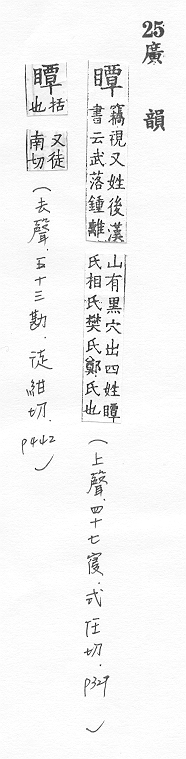 25 廣韻
瞫 竊視又姓後漢書云武落鍾離山有黑穴出四姓瞫氏相氏樊氏鄭氏也(上聲.四十七寑.式任切.p327 ✓
瞫 括也又徒南切(去聲.五十三勘.徒紺切.p442 ✓